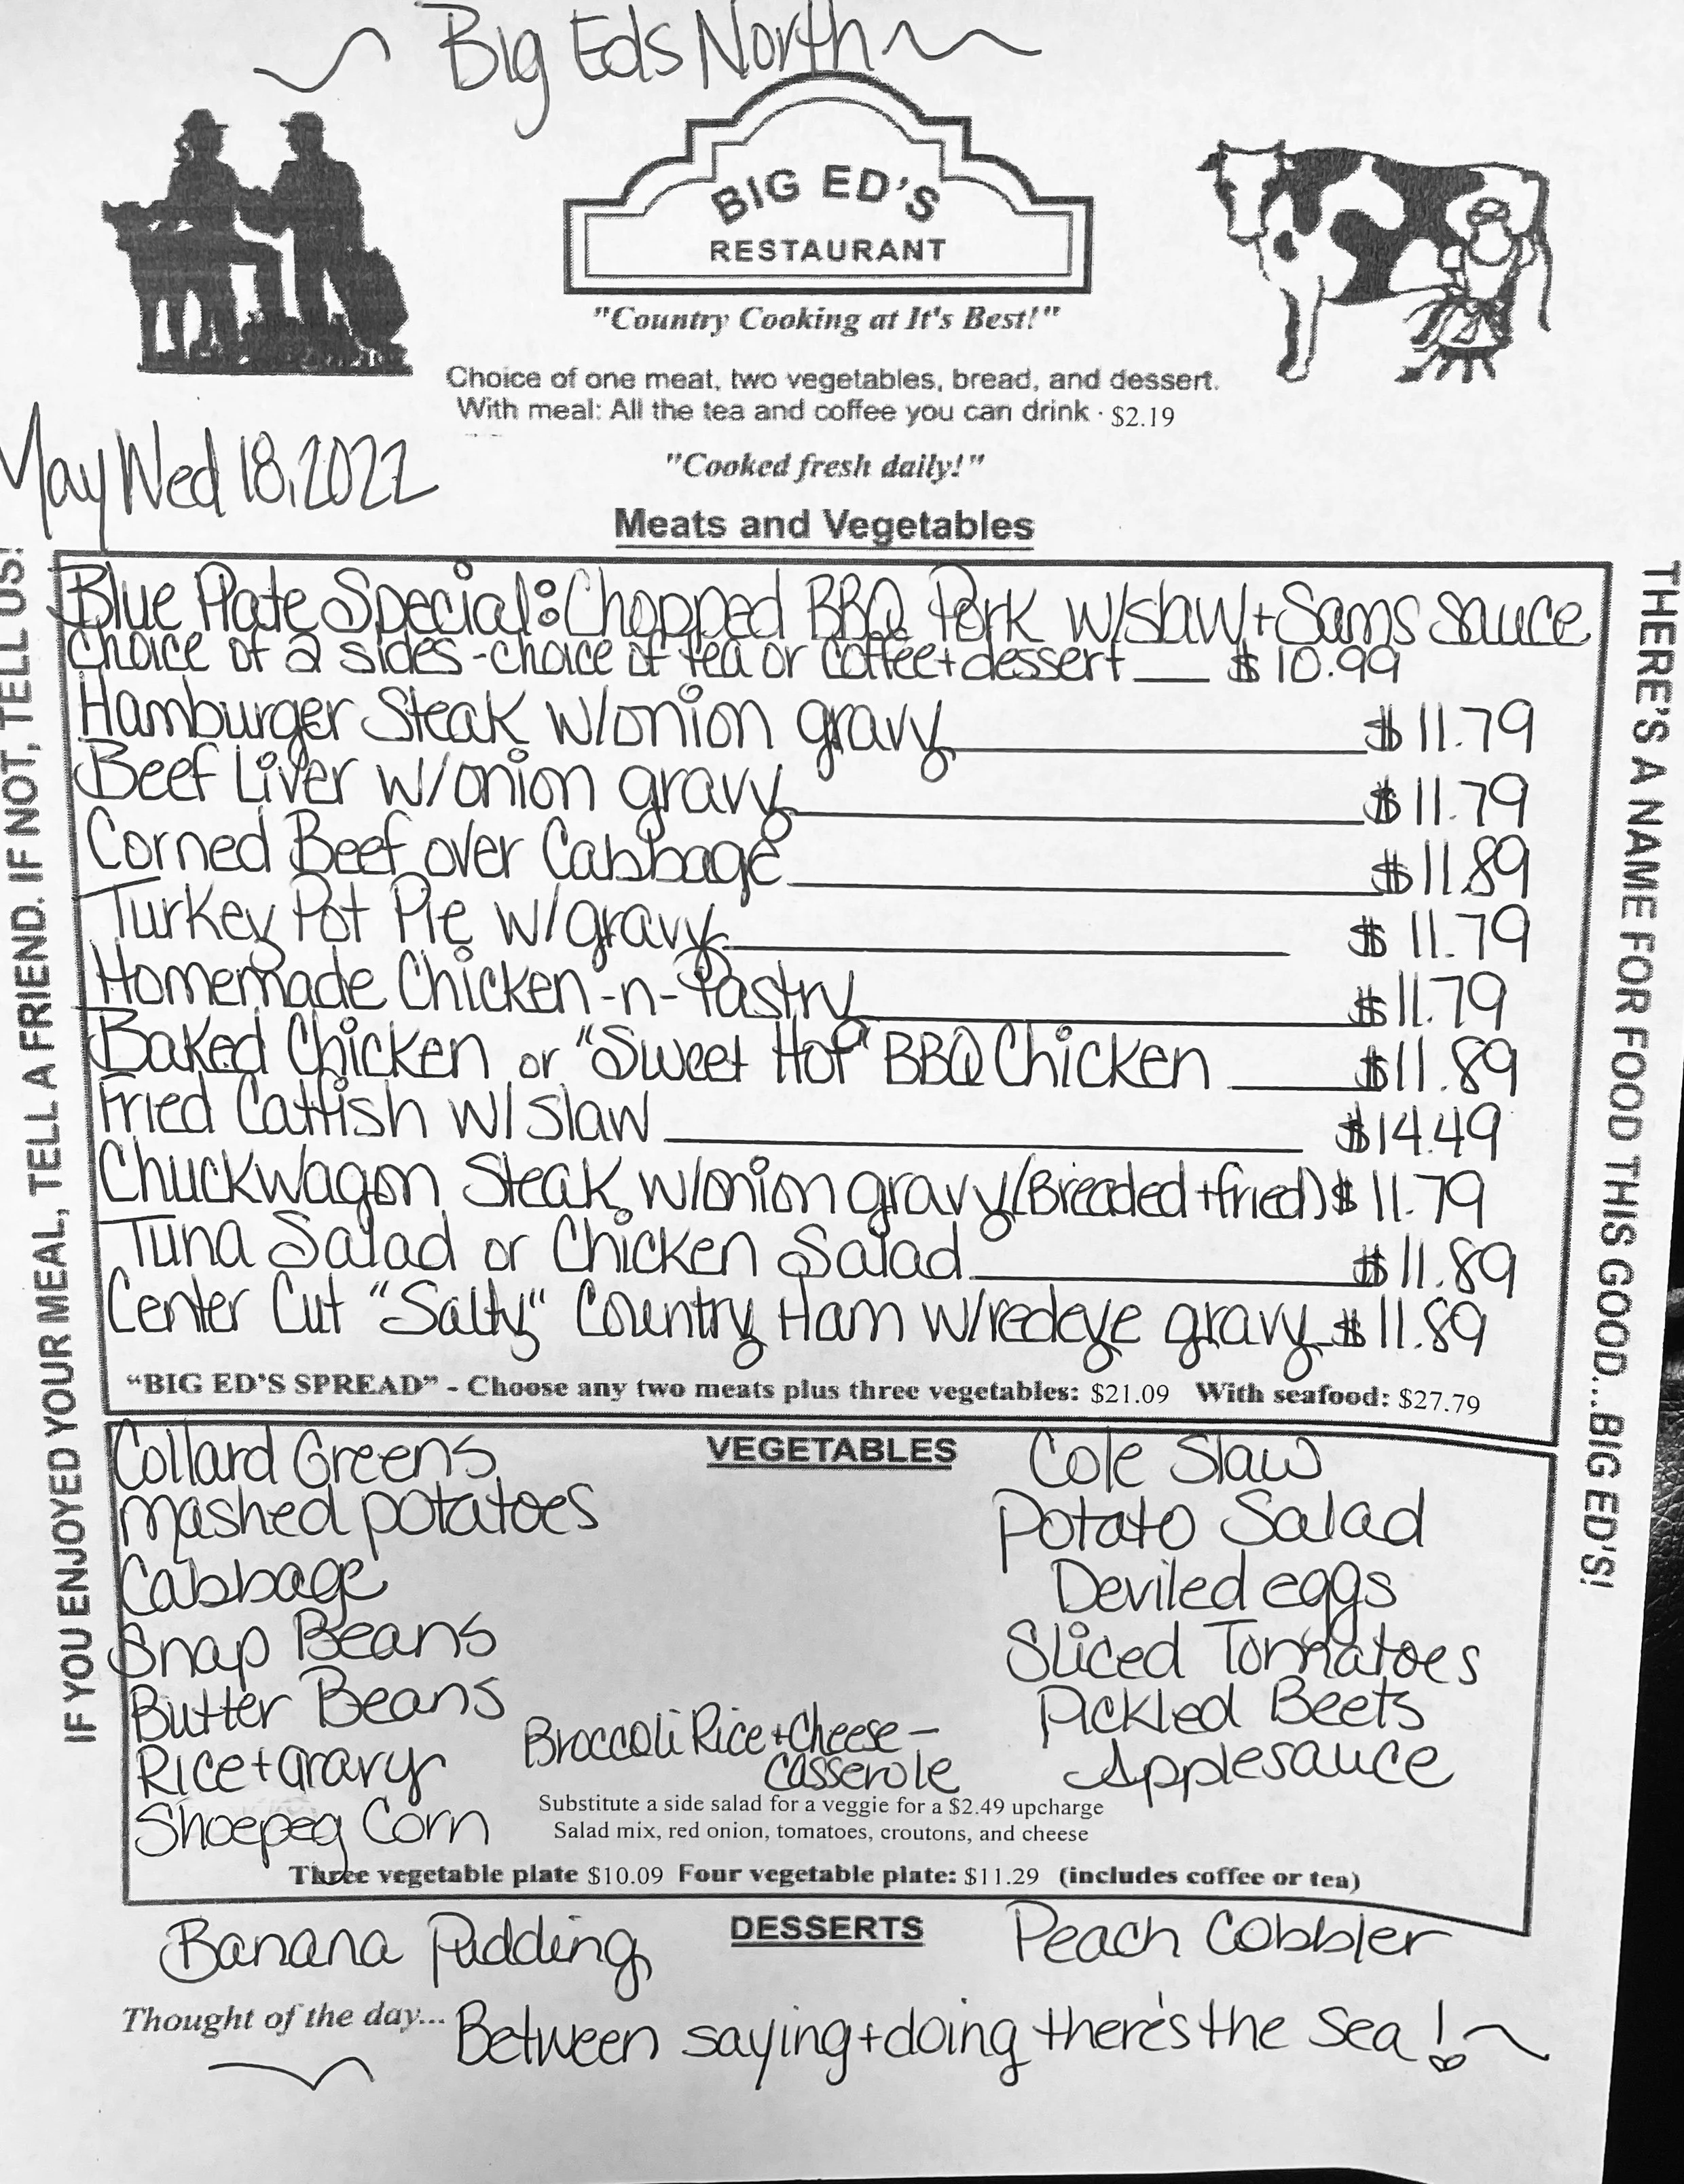 ~ Big Eds North ~
BIG ED'S
RESTAURANT
"Country Cooking at It's Best!"
Choice of one meat, two vegetables, bread, and dessert.
With meal: All the tea and coffee you can drink · $2.19
May Wed 18, 2022
"Cooked fresh daily!"
Meats and Vegetables
Blue Plate Special: Chopped BBQ Pork w/slaw + Sams Sauce
Choice of 2 sides - choice of tea or coffee + dessert __ $10.99
Hamburger Steak w/onion gravy $11.79
Beef Liver w/onion gravy $11.79
Corned Beef over Cabbage $11.89
Turkey Pot Pie w/gravy $11.79
Homemade Chicken-n-Pastry $11.79
Baked Chicken or "Sweet Hot" BBQ Chicken $11.89
Fried Catfish w/ Slaw $14.49
Chuckwagon Steak w/onion gravy (Breaded + fried) $11.79
Tuna Salad or Chicken Salad $11.89
Center Cut "Salty" Country Ham w/redeye gravy $11.89
"BIG ED'S SPREAD" - Choose any two meats plus three vegetables: $21.09 With seafood: $27.79
VEGETABLES
Collard Greens
mashed potatoes
Cabbage
Snap Beans
Butter Beans
Rice + Gravy
Shoepeg Corn
Broccoli Rice + Cheese -
Casserole
Cole Slaw
Potato Salad
Deviled eggs
Sliced Tomatoes
Pickled Beets
Applesauce
Substitute a side salad for a veggie for a $2.49 upcharge
Salad mix, red onion, tomatoes, croutons, and cheese
Three vegetable plate $10.09 Four vegetable plate: $11.29 (includes coffee or tea)
DESSERTS
Banana Pudding
Peach Cobbler
Thought of the day... Between saying + doing there's the Sea! ~
IF YOU ENJOYED YOUR MEAL, TELL A FRIEND. IF NOT, TELL US!
THERE'S A NAME FOR FOOD THIS GOOD...BIG ED'S!